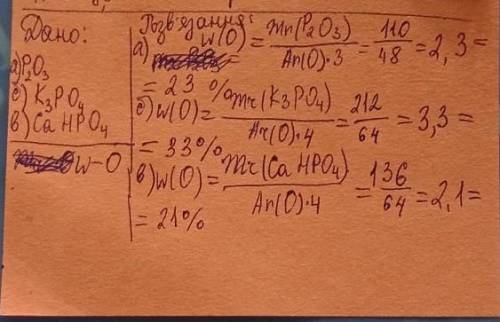 Дано:
а)P₂O₃
б) K₃PO₄
в) Ca HPO₄
W-O
Розв'язання:
а) W(O) = Mr(P₂O₃) / Ar(O)·3 = 110 / 48 = 2,3 =
= 23 %
б) W(O) = Mr(K₃PO₄) / Ar(O)·4 = 212 / 64 = 3,3 =
= 33%
в) W(O) = Mr(Ca HPO₄) / Ar(O)·4 = 136 / 64 = 2,1 =
= 21%